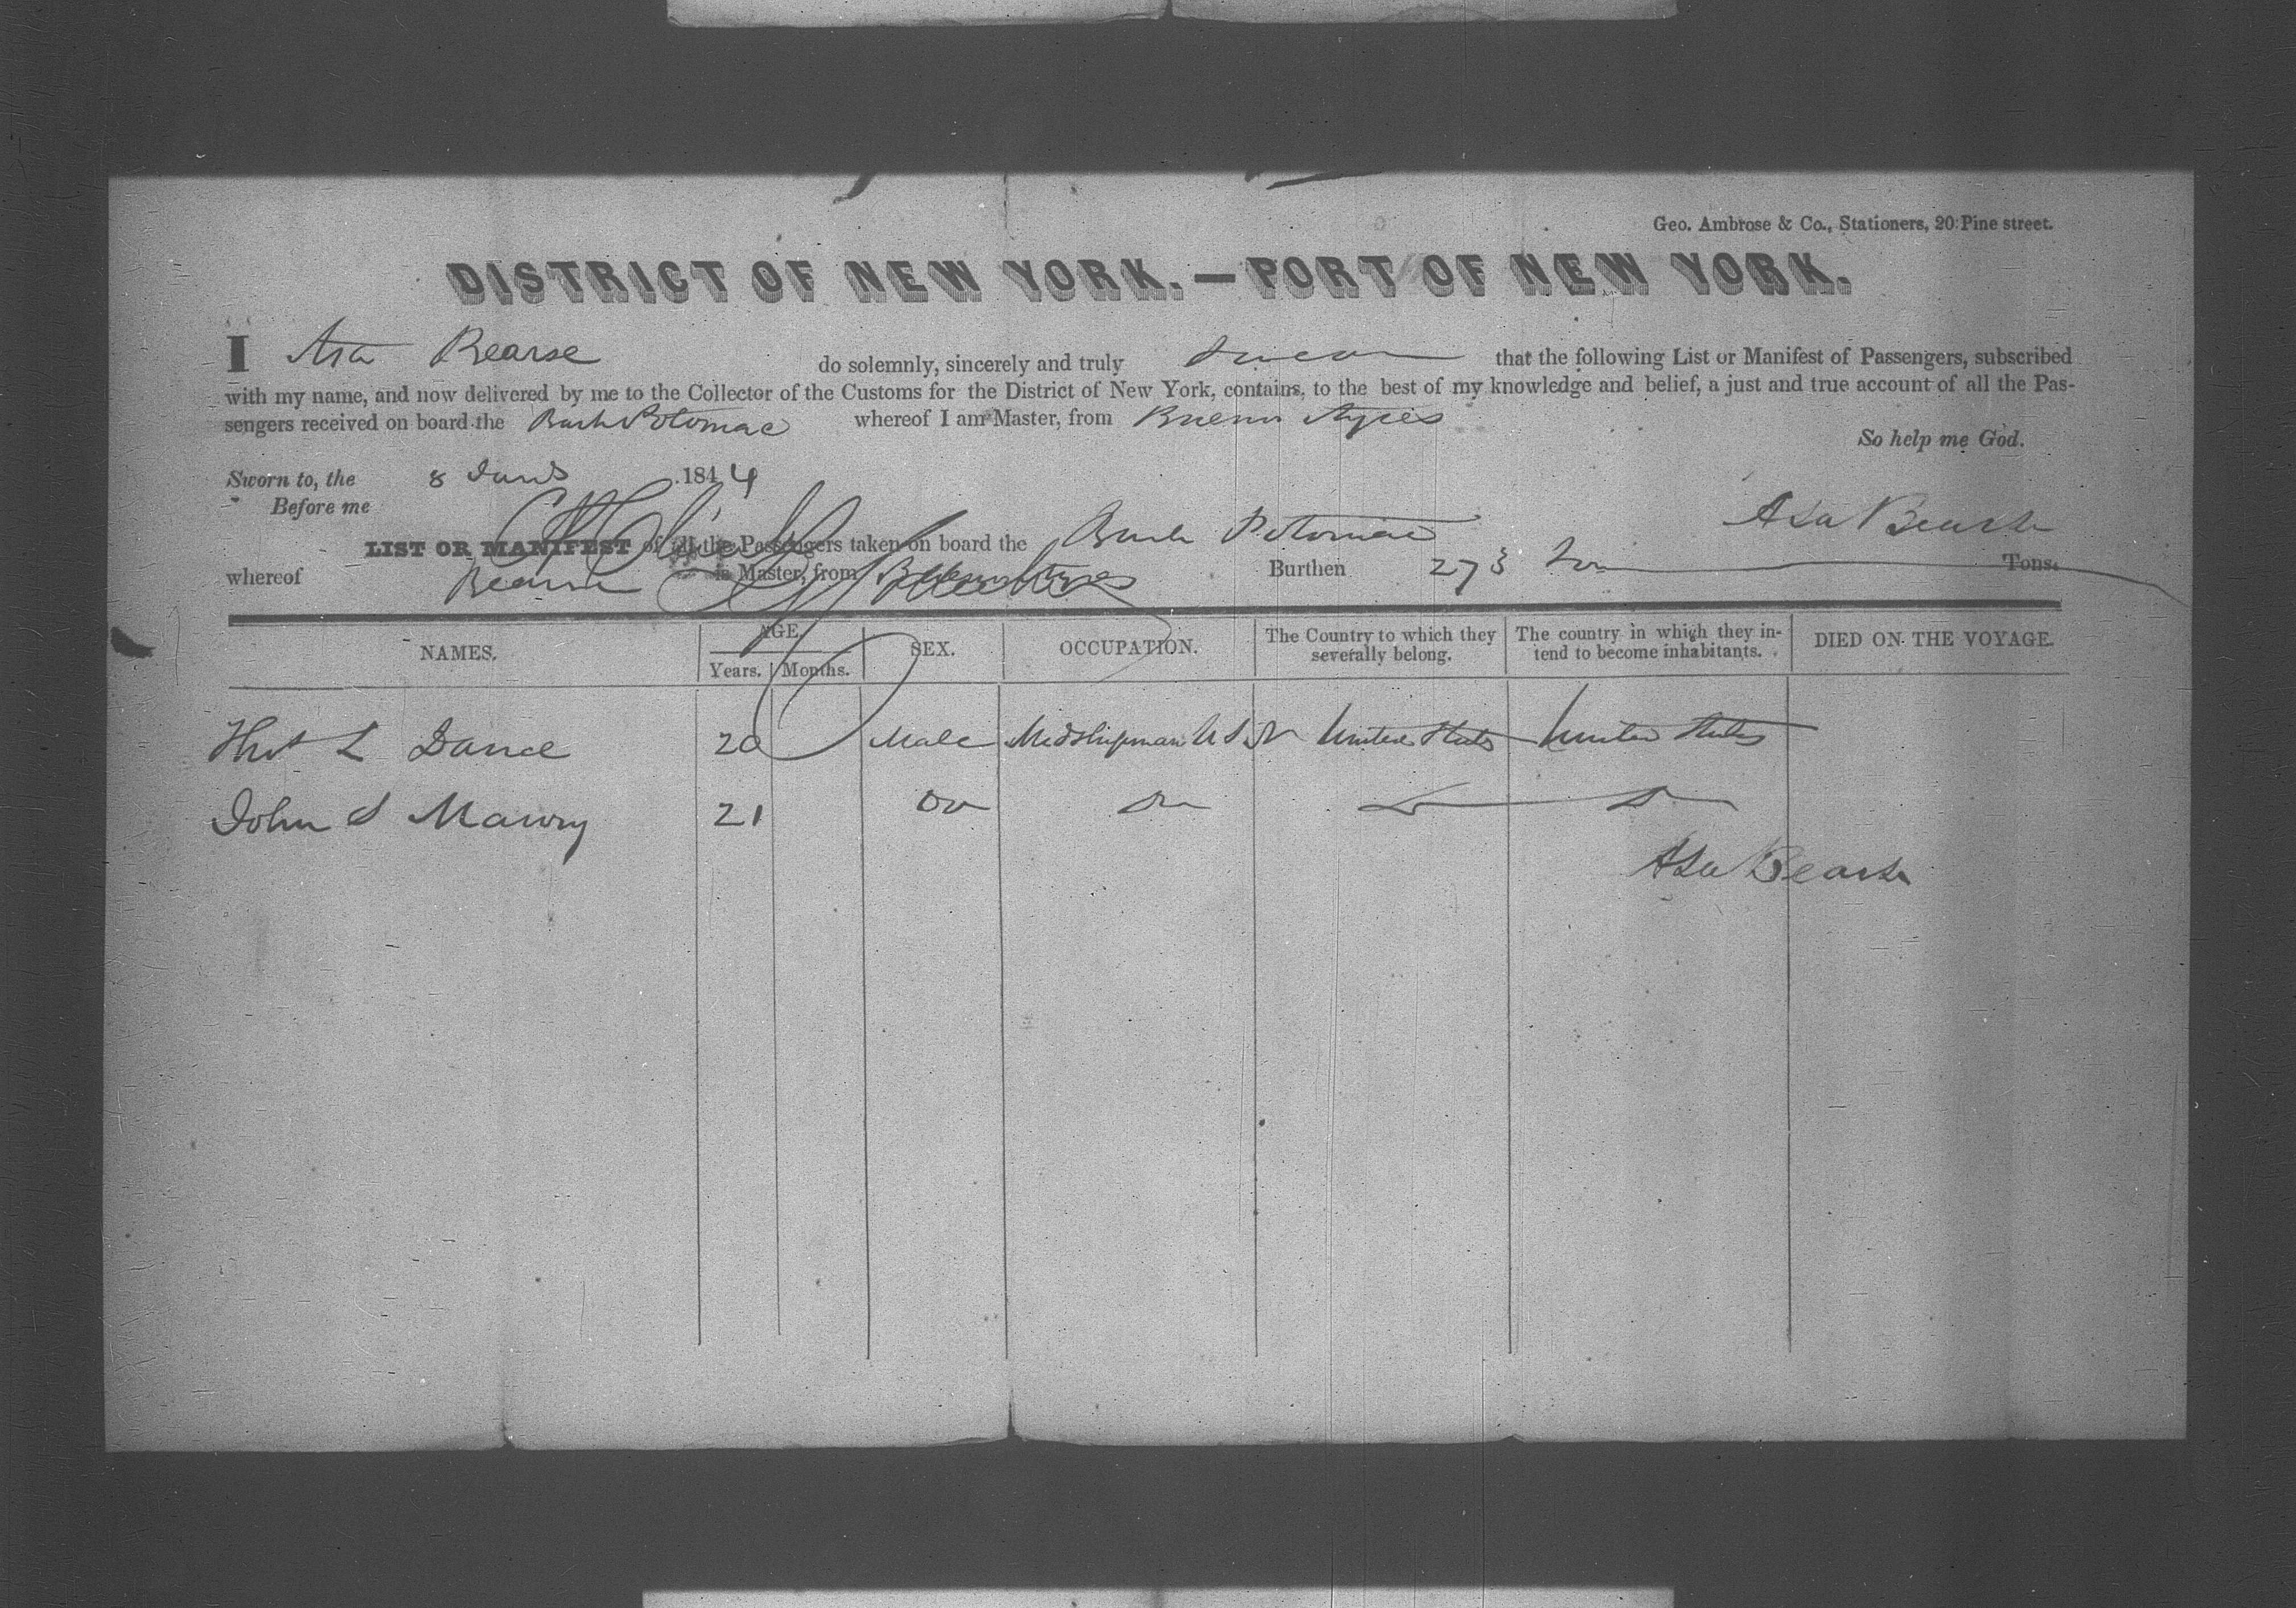 Geo. Ambrose & Co., Stationers, 20 Pine street.
DISTRICT OF NEW YORK.—PORT OF NEW YORK.
I Asa Bearse do solemnly, sincerely and truly swear that the following List or Manifest of Passengers, subscribed
with my name, and now delivered by me to the Collector of the Customs for the District of New York, contains, to the best of my knowledge and belief, a just and true account of all the Pas-
sengers received on board the Bark Potomac whereof I am Master, from Buenos Ayres
So help me God.
Sworn to, the 8 1844
Before me
Asa Bearse
LIST OR MANIFEST of all the Passengers taken on board the Bark Potomac
whereof Bearse is Master, from Buenos Ayres Burthen 273 Tons.
NAMES. AGE. SEX. OCCUPATION. The Country to which they severally belong. The country in which they in-tend to become inhabitants. DIED ON THE VOYAGE.
Years. Months.
L Dance 20 Male Midshipman U S N United States United States
John S Mawry 21 Do Do
Asa Bearse